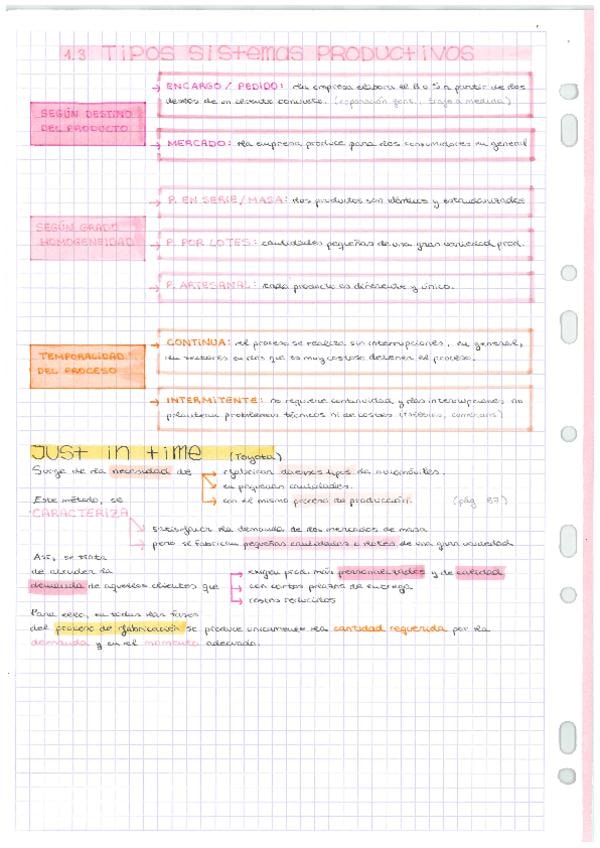 1.3 TIPOS SISTEMAS PRODUCTIVOS
SEGÚN DESTINO
DEL PRODUCTO
→ ENCARGO / PEDIDO: la empresa elabora el B o S a partir de los
deseos de un cliente concreto. (reparación, traje a medida)
→ MERCADO: la empresa produce para los consumidores en general
SEGÚN GRADO
HOMOGENEIDAD
→ P. EN SERIE / MASA: los productos son idénticos y estandarizados
→ P. POR LOTES: cantidades pequeñas de una gran variedad prod.
→ P. ARTESANAL: cada producto es diferente y único.
TEMPORALIDAD
DEL PROCESO
→ CONTINUA: el proceso se realiza sin interrupciones, en general,
en sectores en los que es muy costoso detener el proceso.
→ INTERMITENTE: no requiere continuidad y las interrupciones no
plantean problemas técnicos ni de costes
JUST IN TIME (Toyota)
Surge de la necesidad de → fabricar diversos tipos de automóviles.
→ en pequeñas cantidades.
→ con el mismo proceso de producción. (pág 87)
Este método, se
CARACTERIZA
satisfacer la demanda de los mercados de masa
pero se fabrican pequeñas cantidades o lotes de una gran variedad
Así, se trata
de atender la
demanda de aquellos clientes que
→ exigen prod. más personalizados y de calidad
→ con cortos plazos de entrega
→ costes reducidos
Para ello, en todas las fases
del proceso de fabricación se produce únicamente la cantidad requerida por la
demanda y en el momento adecuado.